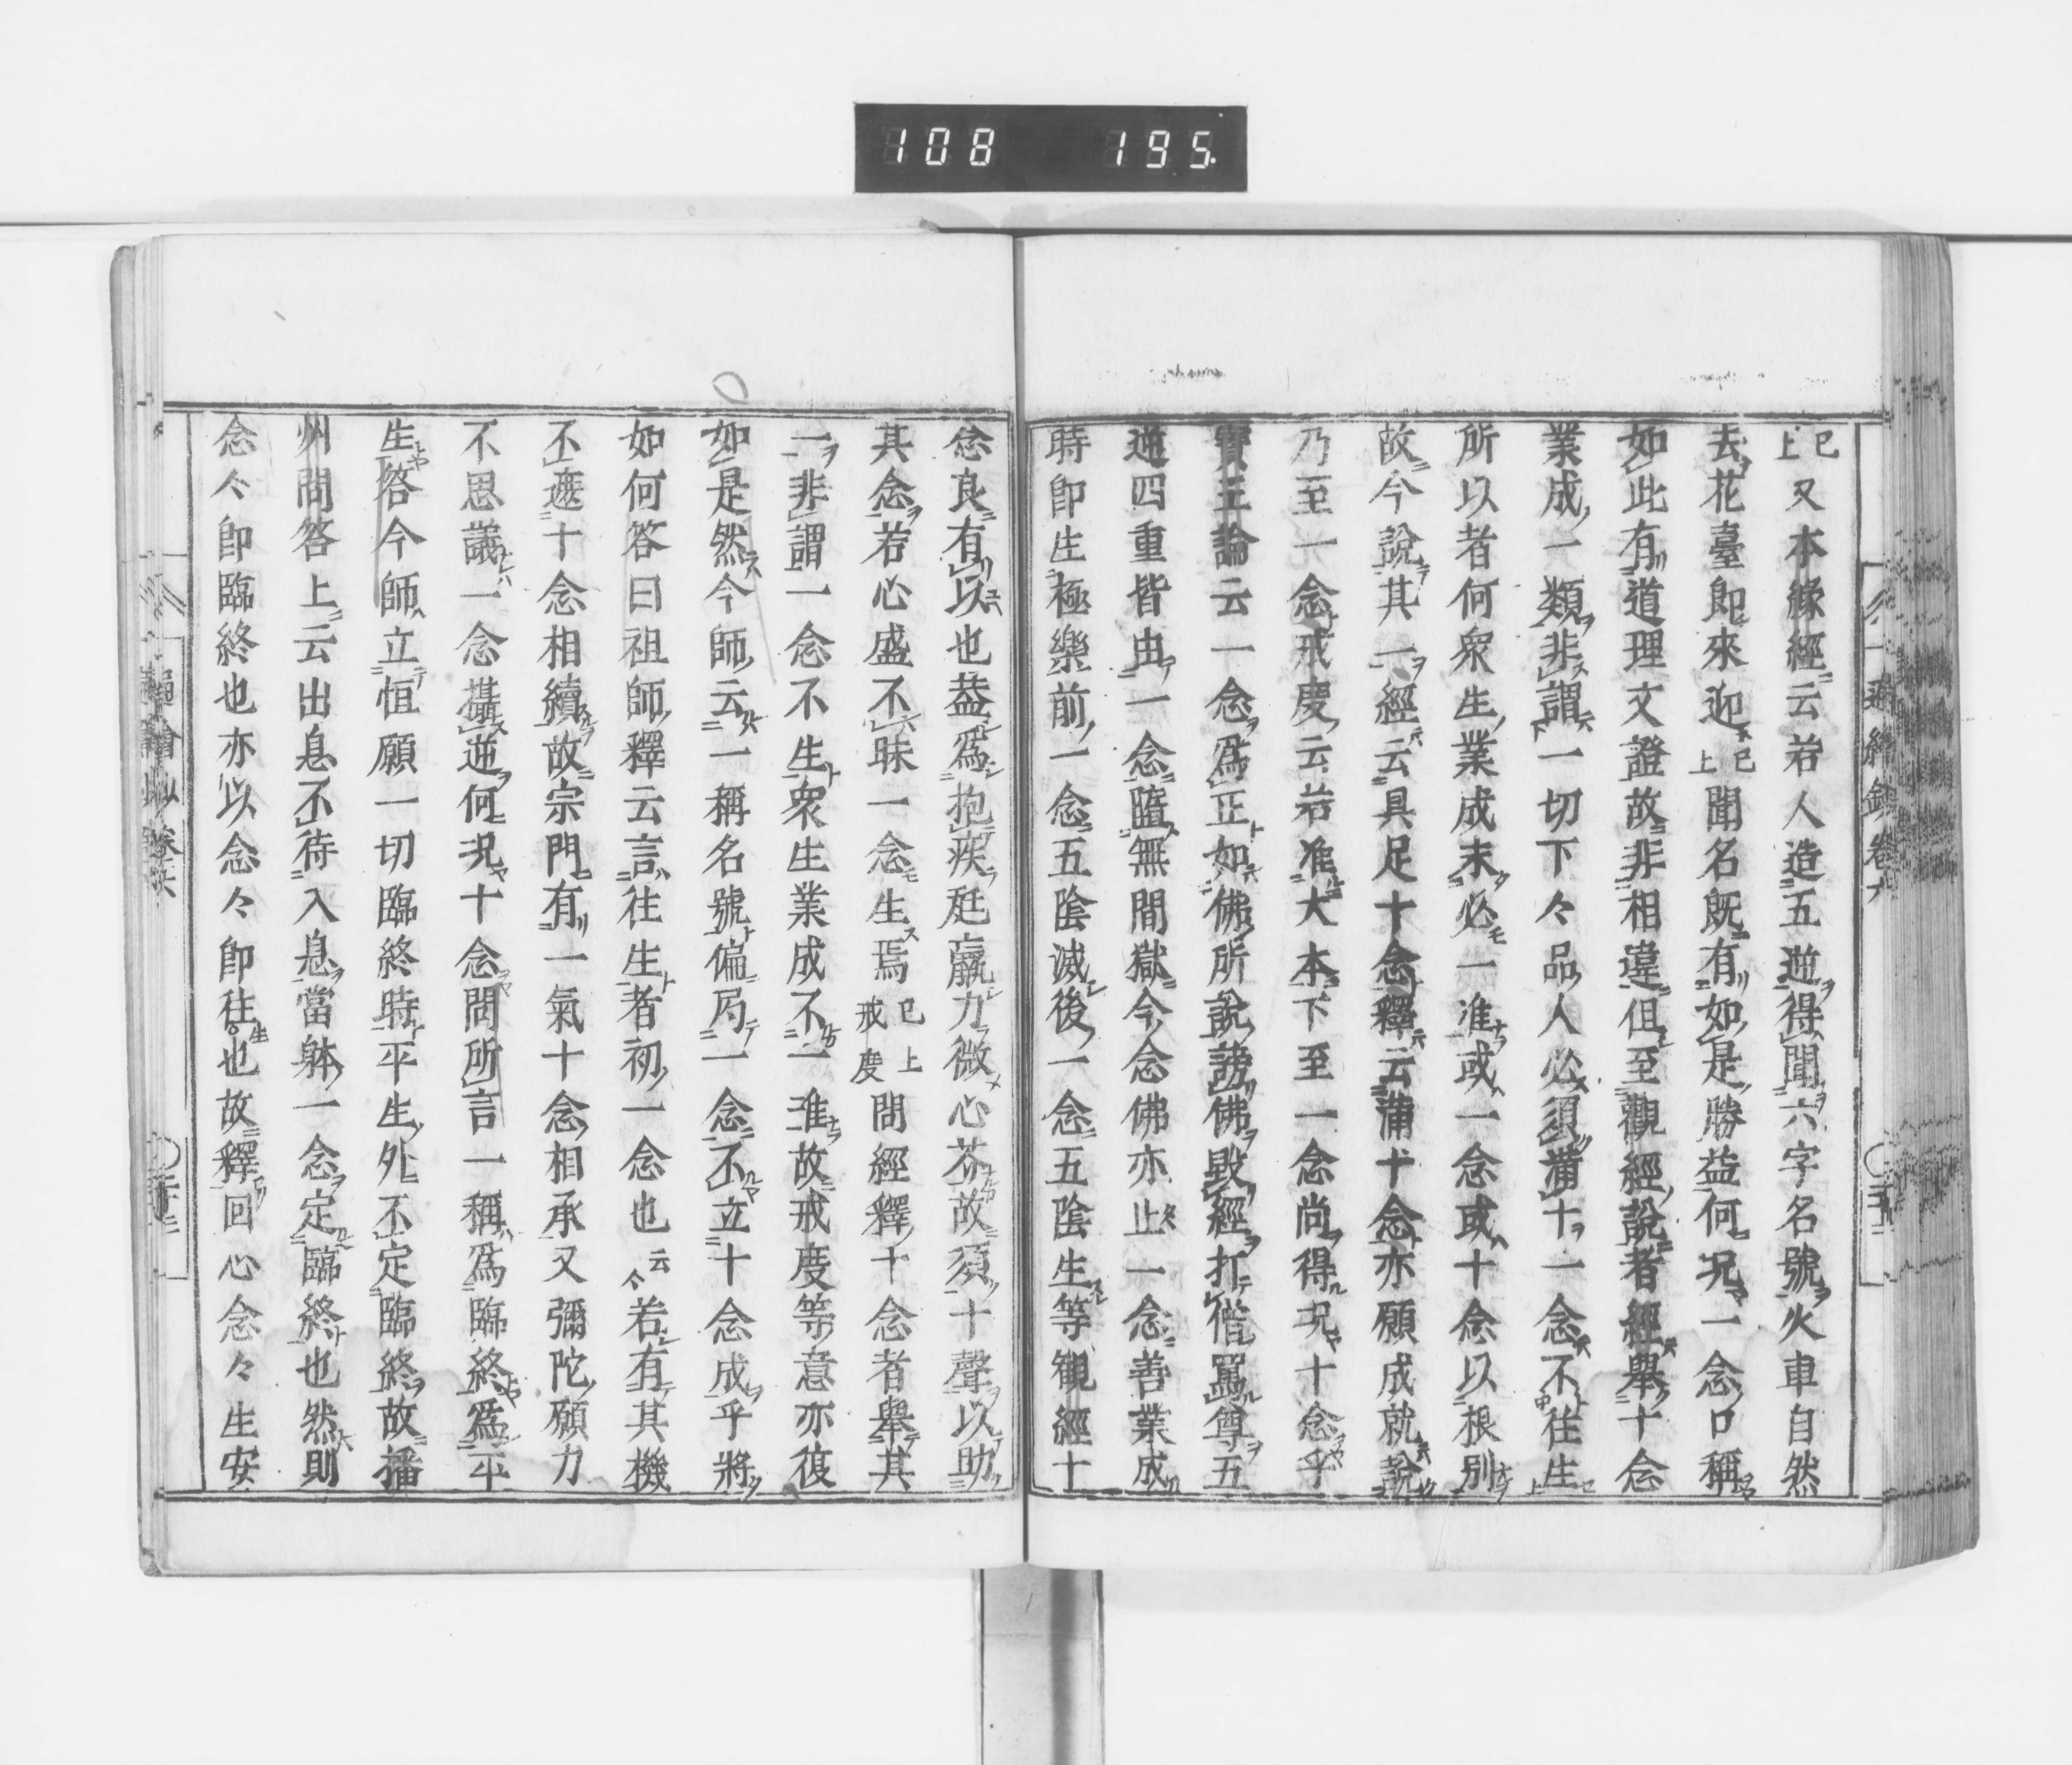 108 195.
已上又本緣經云若人造五逆得聞六字名號火車自然
去花臺即來迎已上聞名既有如是勝益何況一念口稱
如此有道理文證故非相違但至觀經說者經舉十念
業成一類非謂一切下々品人必須滿十一念不往生
所以者何衆生業成未必一准或一念或十念以根別
故今說其一經云具足十念釋云滿十念亦願成就說
乃至一念戒度云若准大本下至一念尚得況十念乎
寶王論云一念爲正如佛所說謗佛毀經打僧罵尊五
逆四重皆由一念墮無間獄今念佛亦止一念善業成
時卽生極樂前一念五陰滅後一念五陰生等觀經十
念良有以也蓋爲抱疾尫羸力微心芥故須十聲以助
其念若心盛不昧一念生焉已上戒度問經釋十念者舉其
一非謂一念不生衆生業成不一准故戒度等意亦復
如是然今師云一稱名號偏局一念不立十念成乎將
如何答曰祖師釋云言往生者初一念也云々若有其機
不遮十念相續故宗門有一氣十念相承又彌陀願力
不思議一念攝逆何況十念問所言一稱爲臨終爲平
生答今師立恒願一切臨終時平生外不定臨終故播
州問答上云出息不待入息當躰一念定臨終也然則
念々卽臨終也亦以念々卽往生也故釋回心念々生安